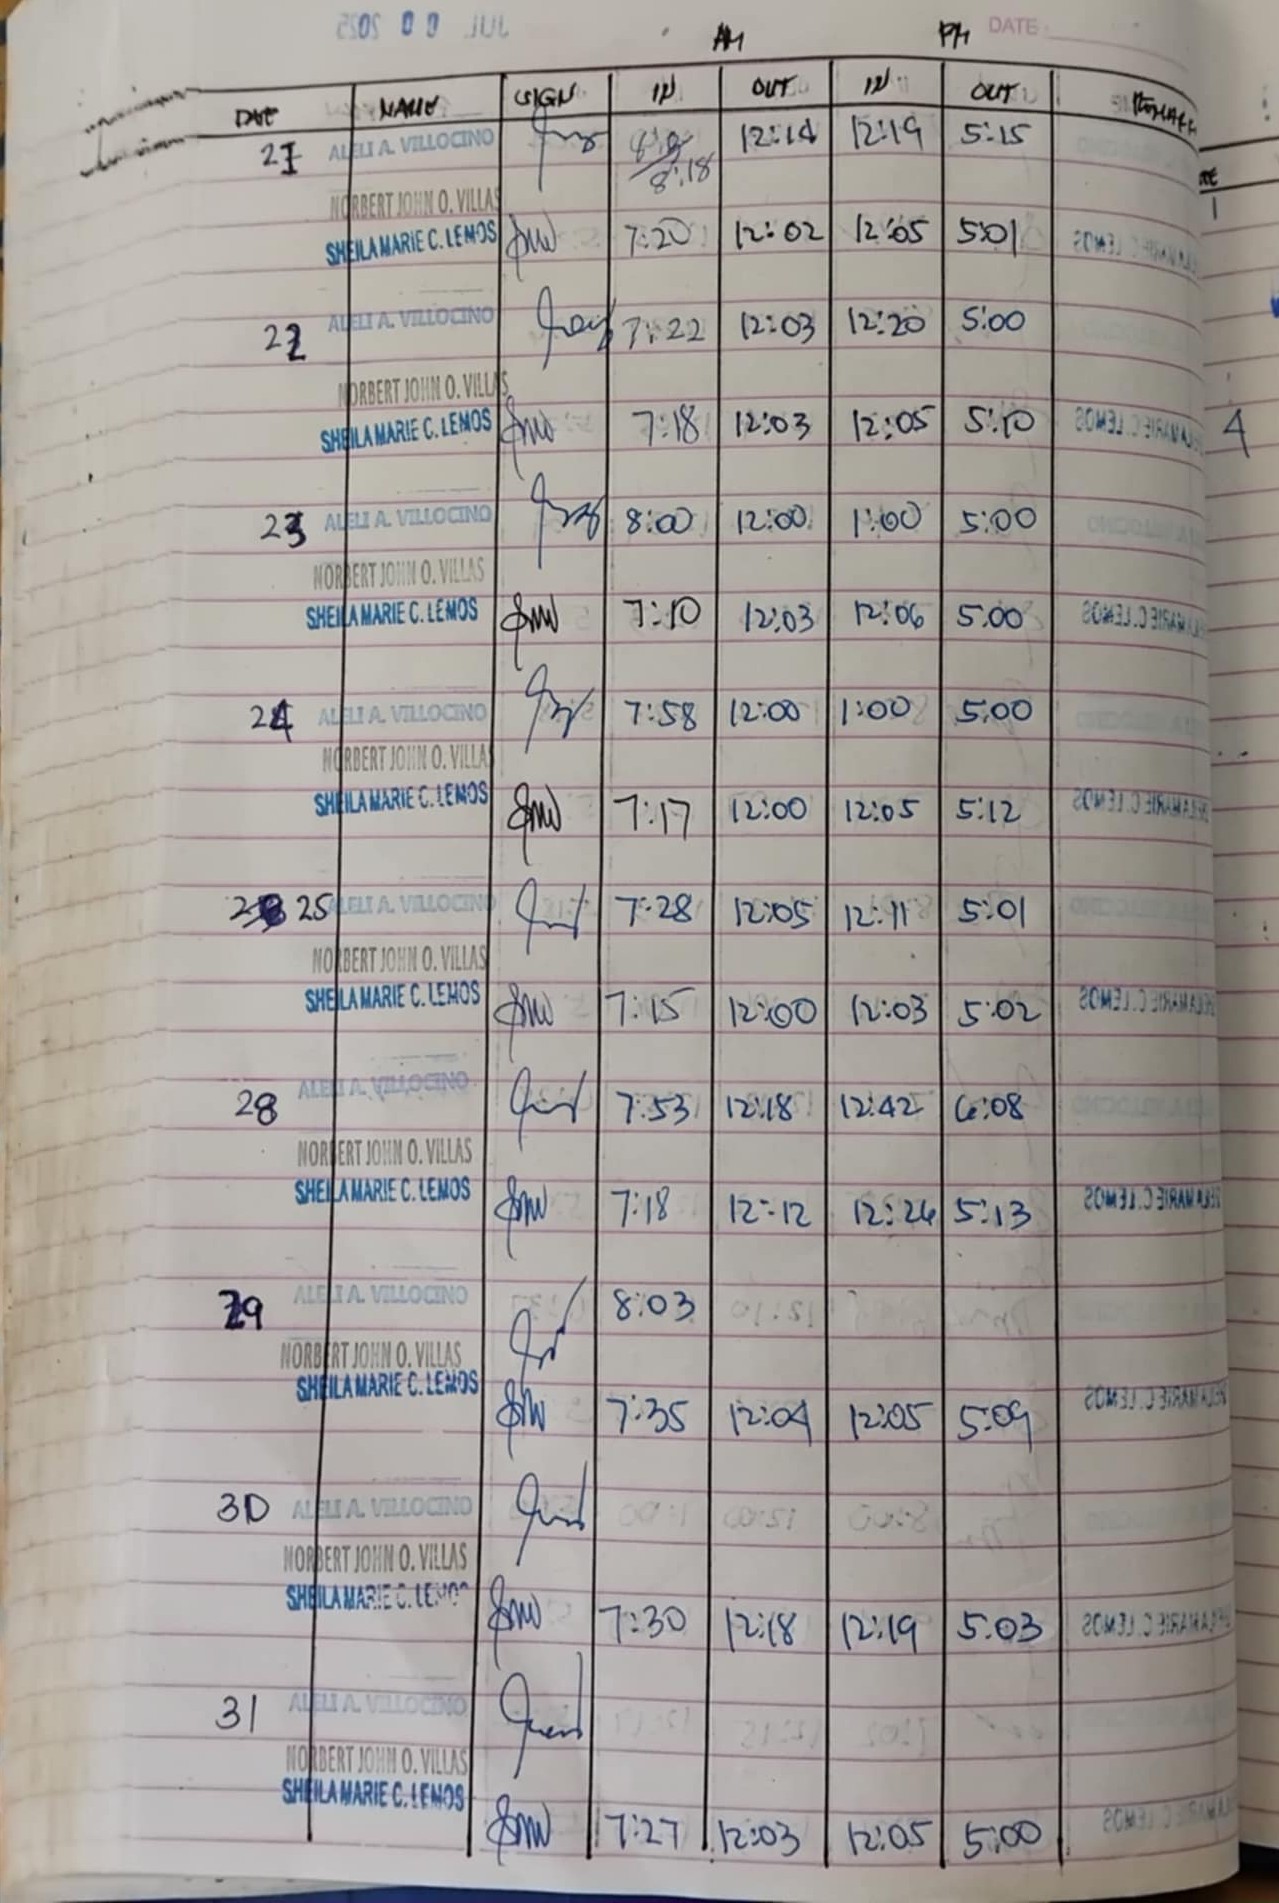 DATE
AM PM
DATE NAME SIGN IN OUT IN OUT
21 ALELI A. VILLOCINO 8:18 12:14 12:19 5:15
NORBERT JOHN O. VILLAS
SHEILA MARIE C. LEMOS 7:20 12:02 12:05 5:01
22 ALELI A. VILLOCINO 7:22 12:03 12:20 5:00
NORBERT JOHN O. VILLAS
SHEILA MARIE C. LEMOS 7:18 12:03 12:05 5:10
4
23 ALELI A. VILLOCINO 8:00 12:00 1:00 5:00
NORBERT JOHN O. VILLAS
SHEILA MARIE C. LEMOS 7:10 12:03 12:06 5:00
24 ALELI A. VILLOCINO 7:58 12:00 1:00 5:00
NORBERT JOHN O. VILLAS
SHEILA MARIE C. LEMOS 7:17 12:00 12:05 5:12
25 ALELI A. VILLOCINO 7:28 12:05 12:11 5:01
NORBERT JOHN O. VILLAS
SHEILA MARIE C. LEMOS 7:15 12:00 12:03 5:02
28 ALELI A. VILLOCINO 7:53 12:18 12:42 6:08
NORBERT JOHN O. VILLAS
SHEILA MARIE C. LEMOS 7:18 12:12 12:26 5:13
29 ALELI A. VILLOCINO 8:03
NORBERT JOHN O. VILLAS
SHEILA MARIE C. LEMOS 7:35 12:04 12:05 5:09
30 ALELI A. VILLOCINO
NORBERT JOHN O. VILLAS
SHEILA MARIE C. LEMOS 7:30 12:18 12:19 5:03
31 ALELI A. VILLOCINO
NORBERT JOHN O. VILLAS
SHEILA MARIE C. LEMOS 7:27 12:03 12:05 5:00